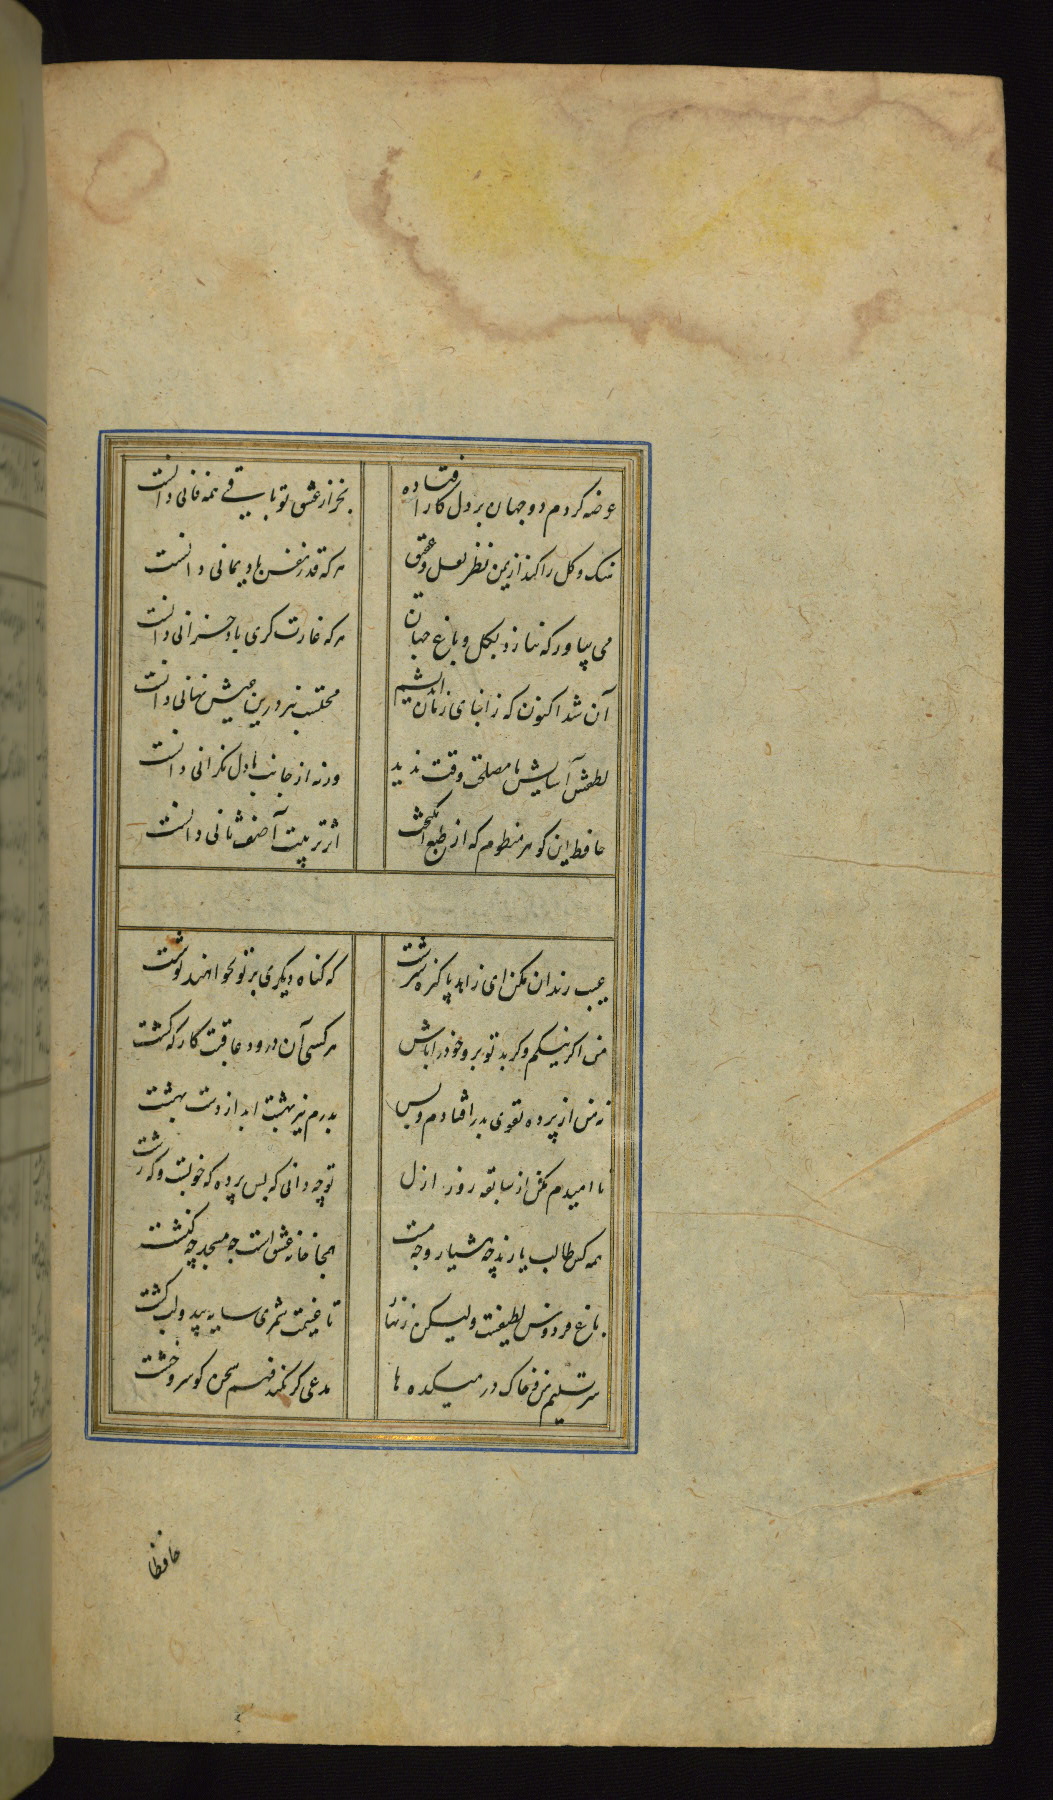 عرضه کردم دو جهان بر دل کار افتاده
بجز از عشق تو باقی همه فانی دانست
سنک و کل را کند از یمن نظر لعل و عقیق
هر که قدر نفس باد یمانی دانست
می بیاور که ننازد بکل و باغ جهان
هر که غارت کری باد خزانی دانست
آن شد اکنون که ز ابنای زمان اندیشم
محتسب نیز درین عیش نهانی دانست
لطفش آسایش ما مصلحت وقت ندید
ورنه از جانب ما دل نکرانی دانست
حافظ این کوهر منظوم که از طبع انکیخت
اثر تربیت آصف ثانی دانست
عیب رندان مکن ای زاهد پاکیزه سرشت
که کناه دیکری بر تو نخواهند نوشت
من اکر نیکم و کر بد تو برو خود را باش
هر کسی آن درود عاقبت کار که کشت
نه من از پرده تقوی بدر افتادم و بس
پدرم نیز بهشت ابد از دست بهشت
نا امیدم مکن از سابقه روز ازل
تو چه دانی که پس پرده که خوبست و که زشت
همه کس طالب یارند چه هشیار و چه مست
همه جا خانه عشق است چه مسجد چه کنشت
باغ فردوس لطیفست ولیکن زنهار
تا غنیمت شمری سایه بید و لب کشت
سر تسلیم من و خاک در میکده ها
مدعی کر نکند فهم سخن کو سر و خشت
حافظا